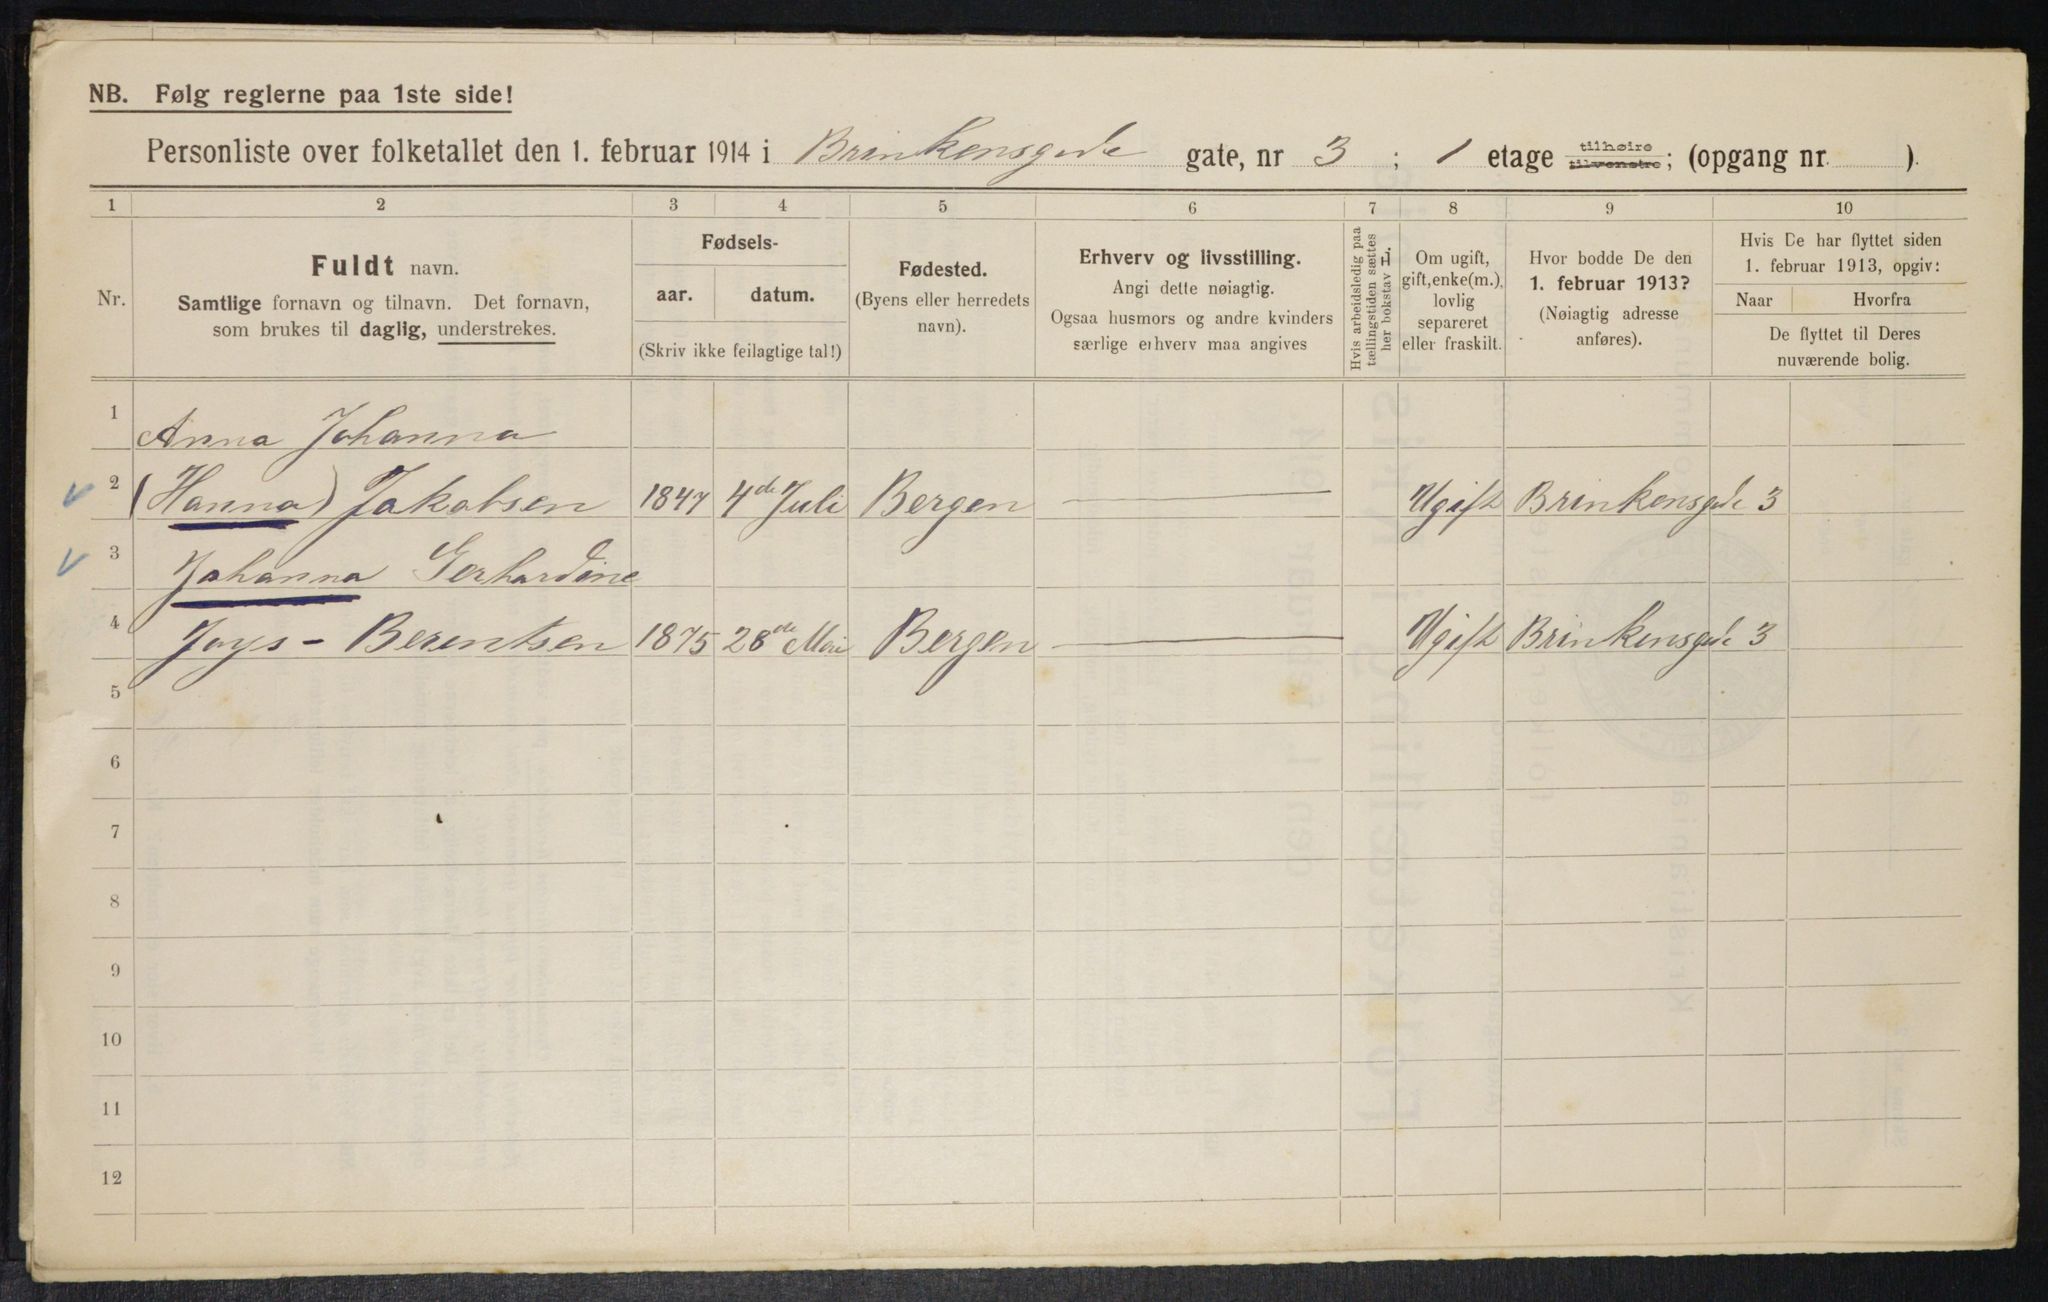 NB. Følg reglerne paa 1ste side!
Personliste over folketallet den 1. februar 1914 i Brinkensgade gate, nr 3 ; 1 etage tilhøire tilvenstre; (opgang nr. ).
1 2 3 4 5 6 7 8 9 10
Nr.
Fuldt navn.
Samtlige fornavn og tilnavn. Det fornavn,
som brukes til daglig, understrekes.
Fødsels-
aar. datum.
(Skriv ikke feilagtige tal!)
Fødested.
(Byens eller herredets
navn).
Erhverv og livsstilling.
Angi dette nøiagtig.
Ogsaa husmors og andre kvinders
særlige erhverv maa angives
Hvis arbeidsledig paa
tællingstiden sættes
her bokstav L.
Om ugift,
gift, enke(m.),
lovlig
separeret
eller fraskilt.
Hvor bodde De den
1. februar 1913?
(Nøiagtig adresse
anføres).
Hvis De har flyttet siden
1. februar 1913, opgiv:
Naar Hvorfra
De flyttet til Deres
nuværende bolig.
1 Anna Johanna
2 (Hanna) Jakobsen 1847 4de Juli Bergen Ugift Brinkensgade 3
3 Johanna Gerhardine
4 Joys - Berentsen 1875 28de Mai Bergen Ugift Brinkensgade 3
5
6
7
8
9
10
11
12